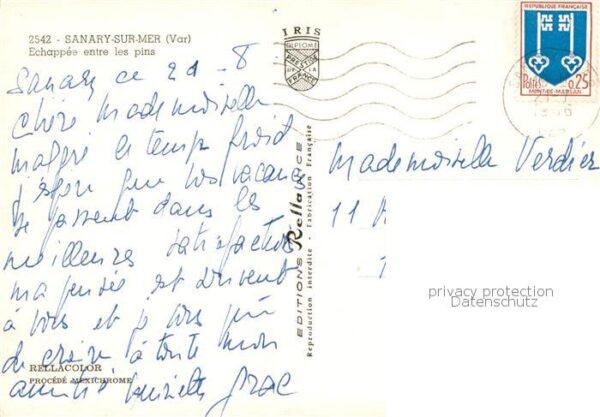 2542 - SANARY-SUR-MER (Var)
Echappée entre les pins
Sanary ce 21 - 8
Chère Mademoiselle
malgré le temps froid
j'espère que vos vacances
se passent dans les
meilleures satisfactions
ma pensée est souvent
à vous et je vous prie
de croire à toute mon
amitié
RELLACOLOR
PROCÉDÉ MEXICHROME
IRIS
DIPLOME
PRESTIGE
DE LA
FRANCE
EDITIONS Rella NICE
Reproduction interdite - Fabrication Française
REPUBLIQUE FRANÇAISE
Postes 0,25
MONT-DE-MARSAN
Mademoiselle Verdier
11
privacy protection
Datenschutz